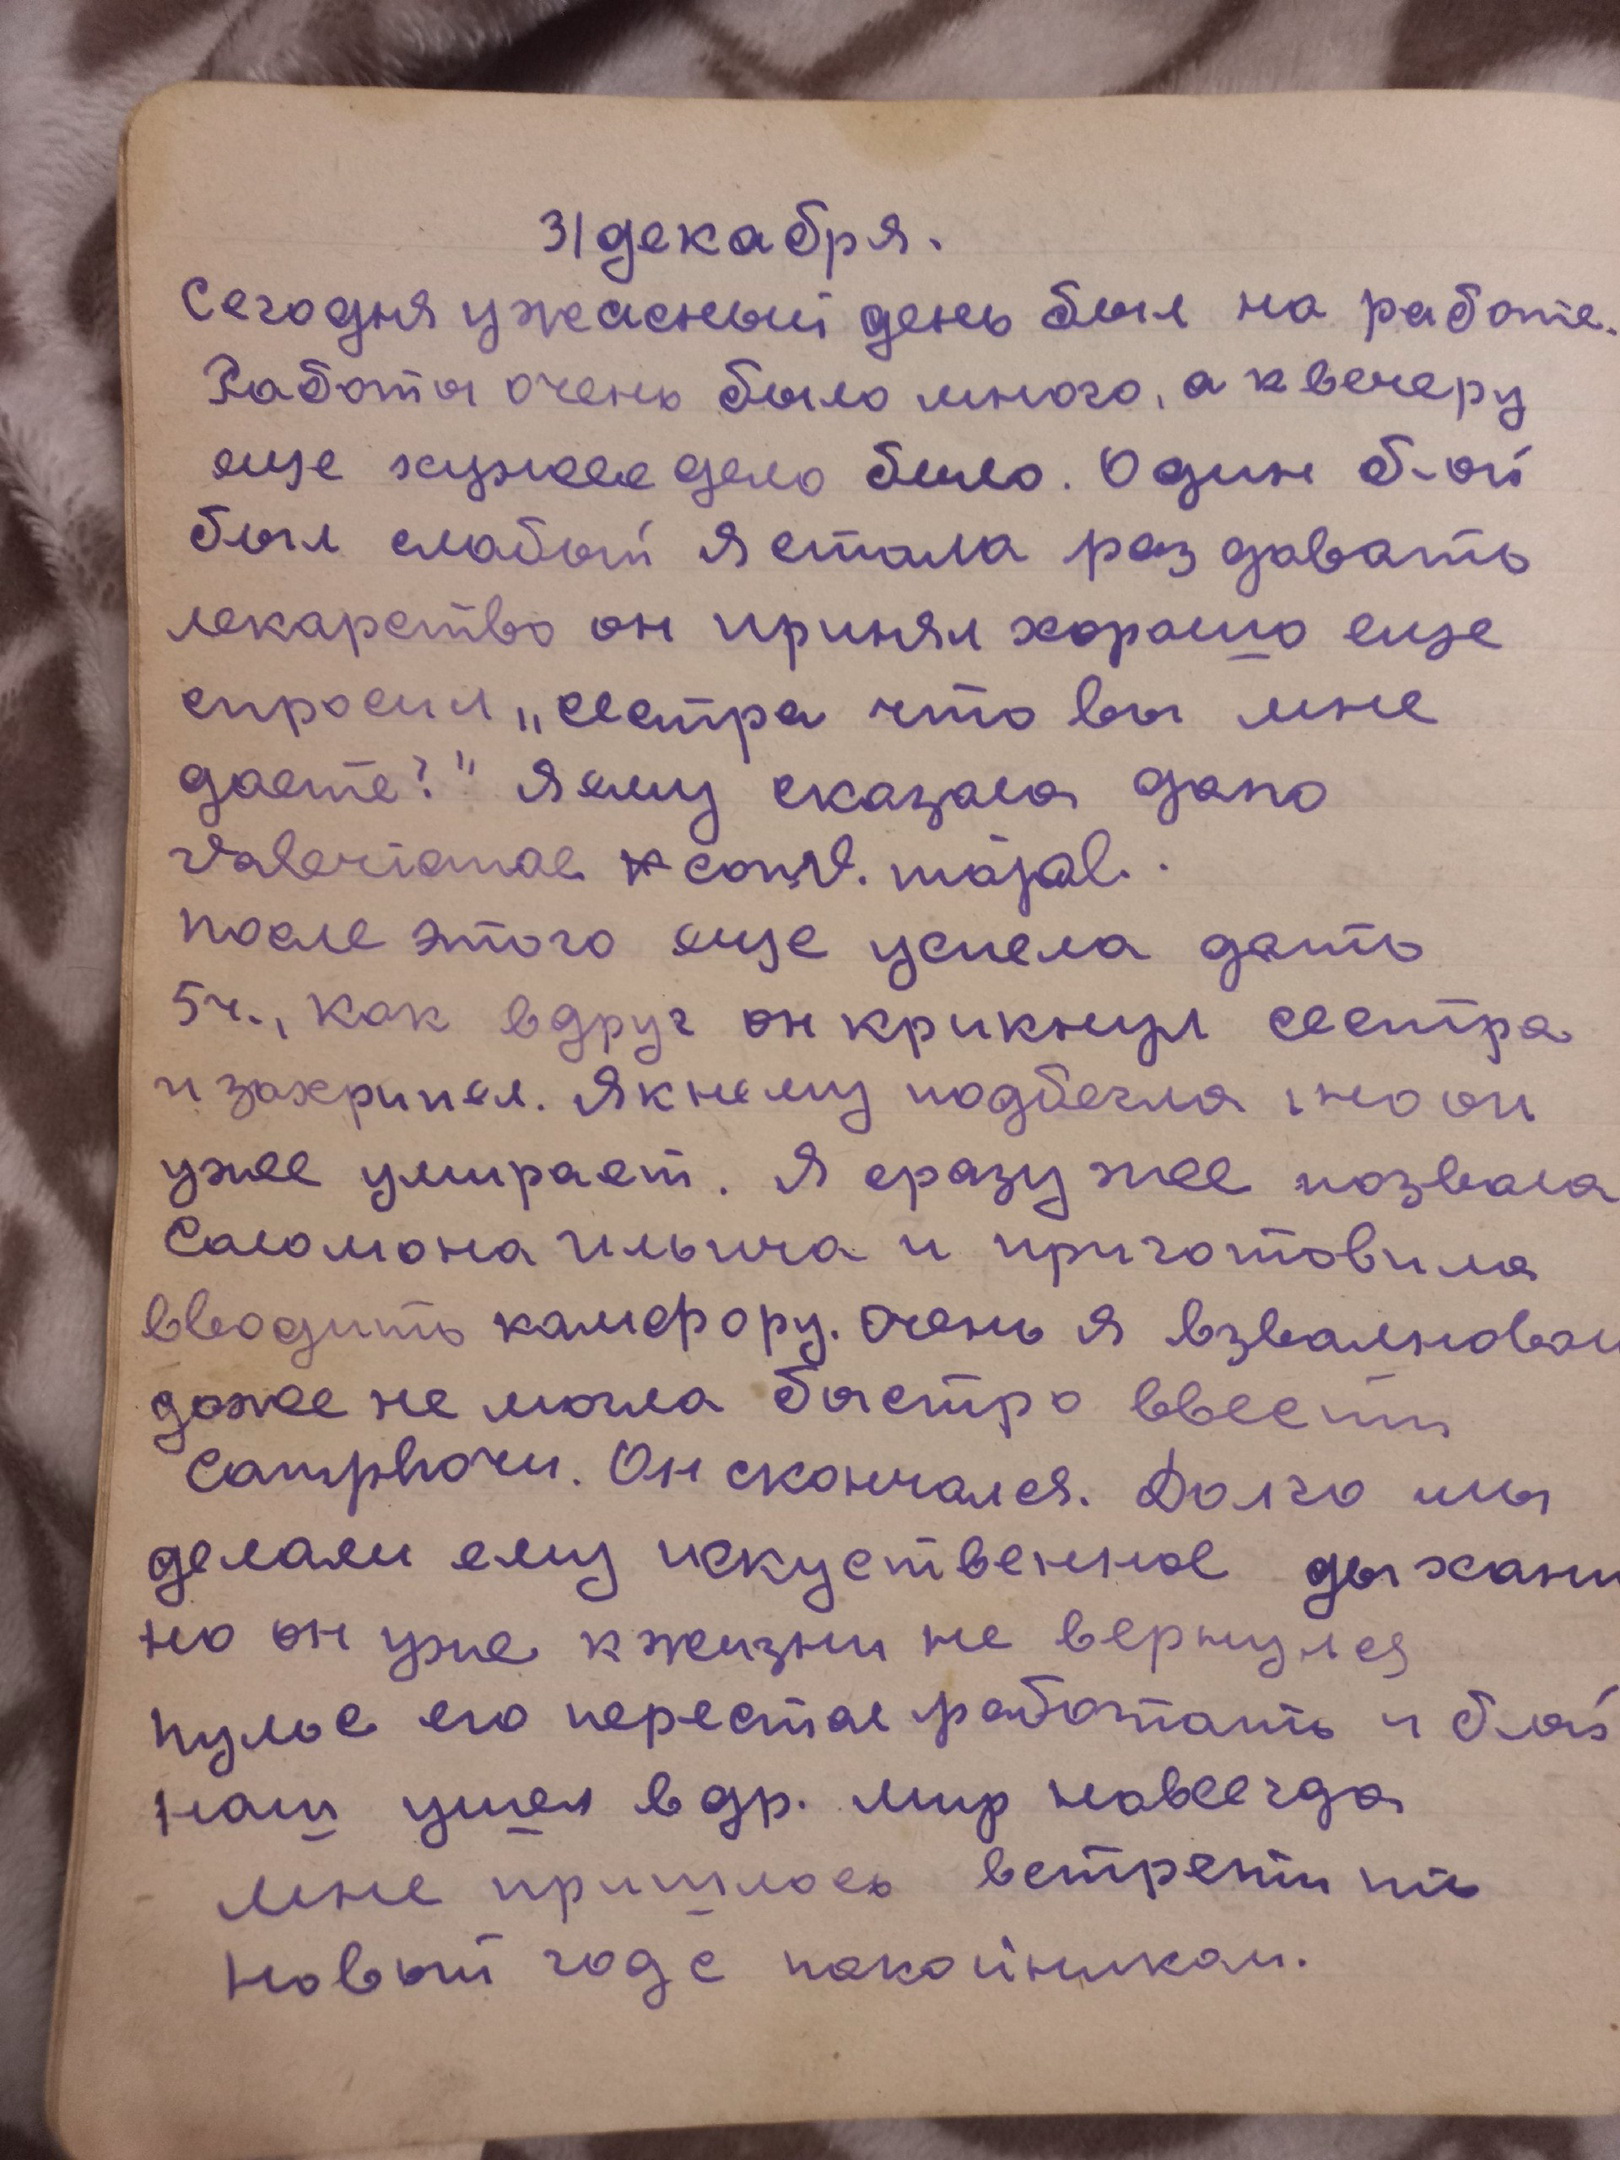 31 декабря.
Сегодня ужасный день был на работе.
Работы очень было много, а к вечеру
еще хужее дело было. Один б-ой
был слабый я стала раздавать
лекарство он принял хорошо еще
спросил „сестра что вы мне
даете?" Я ему сказала дано
Valerianae conv. majal.
после этого еще успела дать
5ч., как вдруг он крикнул сестра
и захрипел. Я к нему подбегла, но он
уже умирает. Я сразу же позвала
Соломона Ильича и приготовила
вводить камфору. Очень я взвалновал
даже не могла быстро ввести
Camphori. Он скончался. Долго мы
делали ему искуственное дыхани
но он уже к жизни не вернулся
пульс его перестал работать и б-ой
наш ушел в др. мир навсегда
мне пришлось встретить
новый год с покойником.